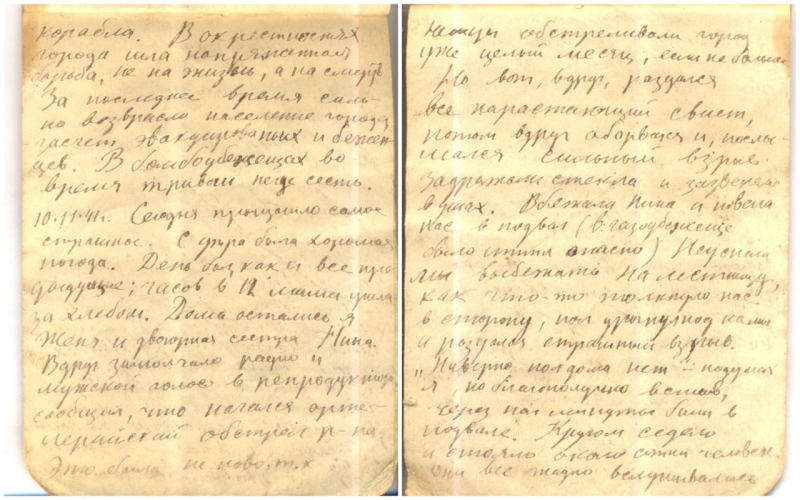 корабля. В окрестностях
города шла напряженная
борьба, не на жизнь, а на смерть
За последнее время силь-
но возврасло население города
засчет эвакуированых и бежен-
цев. В бомбоубежещах во
время тривоги негде сесть.
10.11.41г. Сегодня произошло самое
страшное. С утра была хорошая
погода. День был, как и все пре-
дыдущие; часов в 12 мама ушла
за хлебом. Дома остались я
Женя и двоюрная сестра Нина.
Вдруг замолчало радио и
мужской голос в репродукторе
сообщил, что начался арти-
лерийский обстрел р-на.
Это было не ново, т.к
немцы обстреливали город
уже целый месяц, если не больше
Но вот, вдруг, раздался
все нарастающий свист,
потом вдруг оборвался и, послы-
шался сильный взрыв.
Задрожали стекла и зазвенело
в ушах. Вбежала Нина и повела
нас в подвал (в газоубежеще
было итти опасно) Неуспели
мы выбежать на лестницу,
как что-то толкнуло нас
в сторону, пол дрогнул под нами
и раздался страшный взрыв.
„Наверно полдома нет" - подумал
я но благополучно встав,
через пол минуты были в
подвале. Кругом седело
и стояло около сотни человек.
они все жадно вслушивались